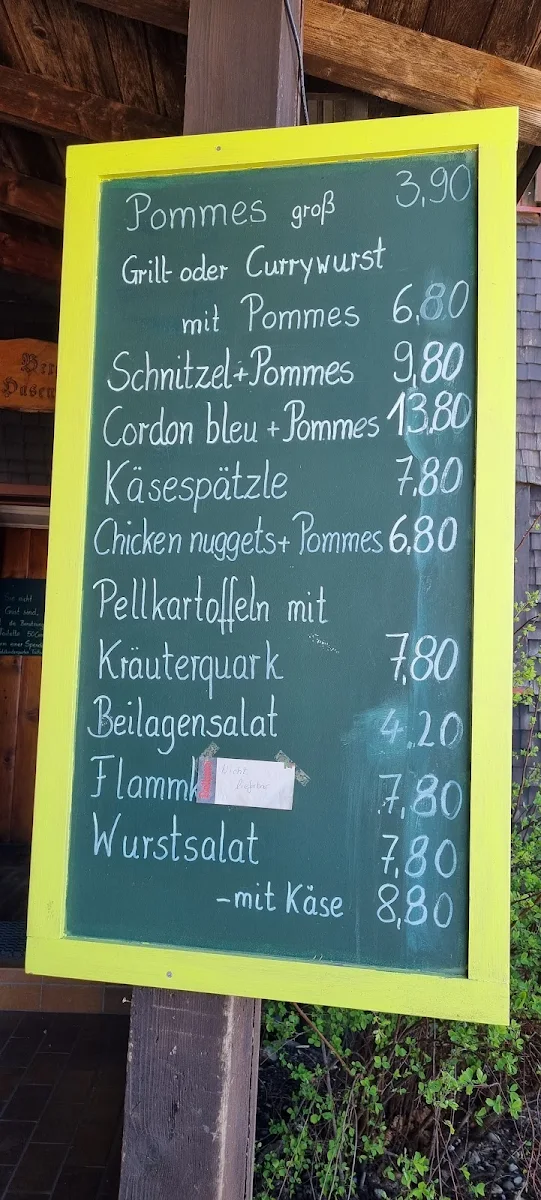 Pommes groß 3,90
Grill oder Currywurst
mit Pommes 6,80
Schnitzel+Pommes 9,80
Cordon bleu + Pommes 13,80
Käsespätzle 7,80
Chicken nuggets+ Pommes 6,80
Pellkartoffeln mit
Kräuterquark 7,80
Beilagensalat 4,20
Flammk 7,80
Wurstsalat 7,80
-mit Käse 8,80